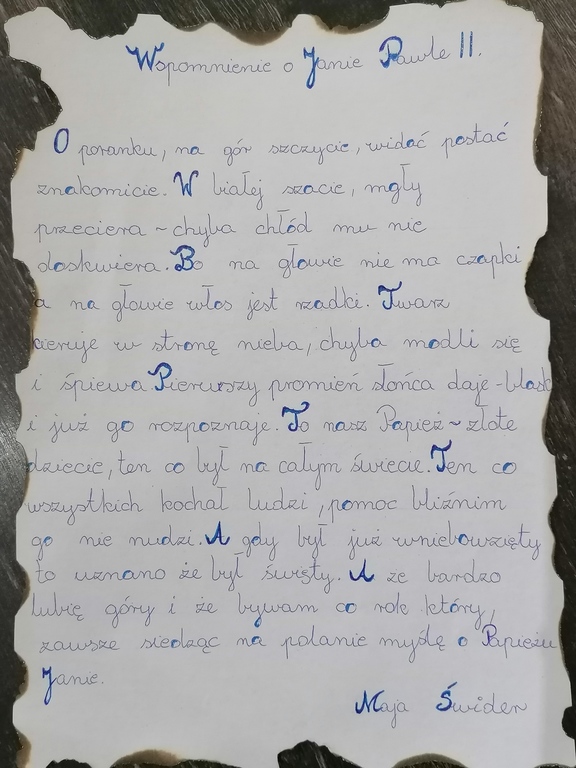 Wspomnienie o Janie Pawle II.
O poranku, na gór szczycie, widać postać
znakomicie. W białej szacie, mgły
przeciera ~ chyba chłód mu nie
doskwiera. Bo na głowie nie ma czapki
a na głowie włos jest rzadki. Twarz
kieruje w stronę nieba, chyba modli się
i śpiewa. Pierwszy promień słońca daje - blask
i już go rozpoznaje. To nasz Papież ~ złote
dziecie, ten co był na całym świecie. Ten co
wszystkich kochał ludzi, pomoc bliźnim
go nie nudzi. A gdy był już wniebowzięty
to uznano że był święty. A że bardzo
lubię góry i że bywam co rok który,
zawsze siedząc na polanie myślę o Papieżu
Janie.
Maja Świder